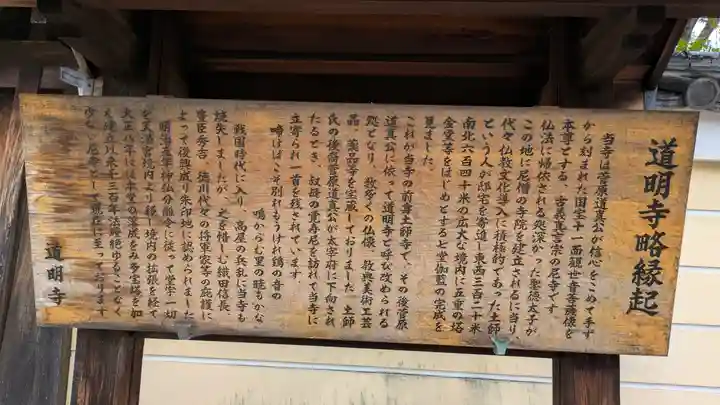 道明寺略縁起
当寺は菅原道真公が信心をこめて手ず
から刻まれた国宝十一面観世音菩薩像を
本尊とする、古義真言宗の尼寺です
仏法に帰依される処深かった聖徳太子が
この地に尼僧の寺院を建立されるに当り、
代々仏教文化導入に積極的であった土師
という人が邸宅を寄進し東西三百二十米
南北六百四十米の広大な境内に五重の塔
金堂等をはじめとする七堂伽藍の完成を
見ました。
これが当寺の前身土師寺で、その後菅原
道真公に依って道明寺と呼び改められる
処となり、数多くの仏像、教典美術工芸
品、薬品等を宝蔵しておりました。土師
氏の後裔菅原道真公が太宰府に下向され
たるとき、叔母の覚寿尼を訪れて当寺に
立寄られ一首を残されています
啼けばこそ別れもうけれ鶏の音の
鳴からむ里の暁もがな
戦国時代に入り、高屋の兵乱に当寺も
焼失しましたが、之を惜しむ織田信長、
豊臣秀吉、徳川代々の将軍家等の庇護に
よって復興成り朱印地に認められました
明治五年神仏分離令に従って堂宇一切
を天満宮境内より移し境内の拡張を経て
大正八年には本堂の落成をみ多宝塔を加
え建立以来千三百年法燈絶ゆることなく
尼寺として現在に至っております
道明寺